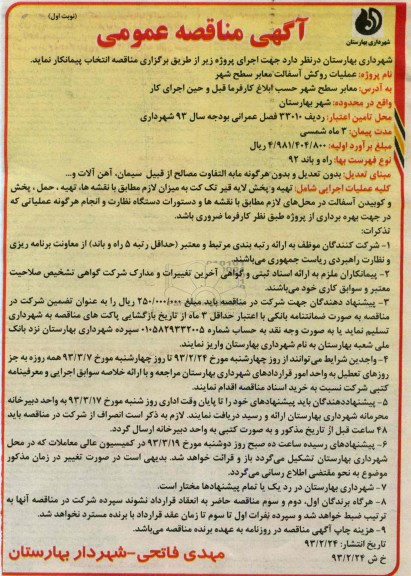 (نوبت اول)
آگهی مناقصه عمومی
شهرداری بهارستان
شهرداری بهارستان درنظر دارد جهت اجرای پروژه زیر از طریق برگزاری مناقصه انتخاب پیمانکار نماید.
نام پروژه: عملیات روکش آسفالت معابر سطح شهر
به آدرس: معابر سطح شهر حسب ابلاغ کارفرما قبل و حین اجرای کار
واقع در محدوده: شهر بهارستان
محل تامین اعتبار: ردیف ۳۳۰۱۰ فصل عمرانی بودجه سال ۹۳ شهرداری
مدت پیمان: ۳ ماه شمسی
مبلغ برآورد اولیه: ۴/۹۸۱/۴۰۴/۸۰۰ ریال
نوع فهرست بها: راه و باند ۹۲
مبنای تعدیل: بدون تعدیل و بدون هرگونه مابه التفاوت مصالح از قبیل سیمان، آهن آلات و...
کلیه عملیات اجرایی شامل: تهیه و پخش لایه قیر تک کت به میزان لازم مطابق با نقشه ها، تهیه ، حمل ، پخش
و کوبیدن آسفالت در محل‌های لازم مطابق با نقشه ها و دستورات دستگاه نظارت و انجام هرگونه عملیاتی که
در جهت بهره برداری از پروژه طبق نظر کارفرما ضروری باشد.
تذکرات:
۱- شرکت کنندگان موظف به ارائه رتبه بندی مرتبط و معتبر (حداقل رتبه ۵ راه و باند) از معاونت برنامه ریزی
و نظارت راهبردی ریاست جمهوری می‌باشند.
۲- پیمانکاران ملزم به ارائه اسناد ثبتی و گواهی آخرین تغییرات و مدارک شرکت گواهی تشخیص صلاحیت
معتبر و سوابق کاری خود می‌باشند.
۳- پیشنهاد دهندگان جهت شرکت در مناقصه باید مبلغ ۲۵۰/۰۰۰/۰۰۰ ریال را به عنوان تضمین شرکت در
مناقصه به صورت ضمانتنامه بانکی با اعتبار حداقل ۳ ماه از تاریخ بازگشایی پاکت های مناقصه به شهرداری
تسلیم نماید یا به صورت وجه نقد به حساب شماره ۰۱۰۵۸۲۹۳۳۲۰۰۵ سپرده شهرداری بهارستان نزد بانک
ملی شعبه بهارستان به نام شهرداری بهارستان واریز نمایند.
۴- واجدین شرایط می‌توانند از روز چهارشنبه مورخ ۹۳/۲/۲۴ تا روز چهارشنبه مورخ ۹۳/۳/۷ همه روزه به جز
روزهای تعطیل به واحد امور قراردادهای شهرداری بهارستان مراجعه و با ارائه خلاصه سوابق اجرایی و معرفینامه
کتبی شرکت نسبت به خرید اسناد مناقصه اقدام نمایند.
۵- پیشنهاددهندگان باید پیشنهادهای خود را تا پایان وقت اداری روز شنبه مورخ ۹۳/۳/۱۷ به واحد دبیرخانه
محرمانه شهرداری بهارستان ارائه و رسید دریافت نمایند. لازم به ذکر است انصراف از شرکت در مناقصه باید
۴۸ ساعت قبل از تاریخ مذکور و به صورت کتبی به واحد دبیرخانه ارسال گردد.
۶- پیشنهادهای رسیده ساعت ده صبح روز دوشنبه مورخ ۹۳/۳/۱۹ در کمیسیون عالی معاملات که در محل
شهرداری بهارستان تشکیل می‌گردد باز و قرائت خواهد شد. بدیهی است در صورت تغییر در زمان مذکور
موضوع به نحو مقتضی اطلاع رسانی می‌گردد.
۷- شهرداری بهارستان در رد یک یا تمام پیشنهادها مختار است.
۸- هرگاه برندگان اول، دوم و سوم مناقصه حاضر به انعقاد قرارداد نشوند سپرده شرکت در مناقصه آنها به
ترتیب ضبط خواهد شد و سپرده نفرات اول تا سوم تا زمان عقد قرارداد با برنده مسترد نخواهد شد.
۹- هزینه چاپ آگهی مناقصه در روزنامه به عهده برنده مناقصه می‌باشد.
تاریخ انتشار: ۹۳/۲/۲۴
خ ش ۹۳/۲/۲۴
مهدی فاتحی-شهردار بهارستان